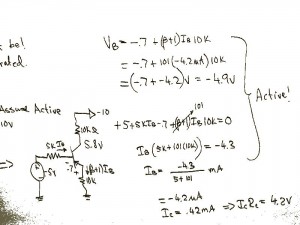 be!
rated.
Assume Active
10V
V_B = -.7 + (β+1)I_B 10K
= -.7 + 101(-4.2mA)10K
= (-.7 + -4.2)V = -4.9V
Active!
-10
10KΩ
5.8V
5K I_B
-.7
(β+1)I_B
10K
-5V
101
+5+5KI_B-.7+(β+1)I_B 10K=0
I_B (5K+101(10K)) = -4.3
I_B = -4.3 / 5+101 mA
= -4.2uA
I_C = .42mA ⇒ I_C R_C = 4.2V